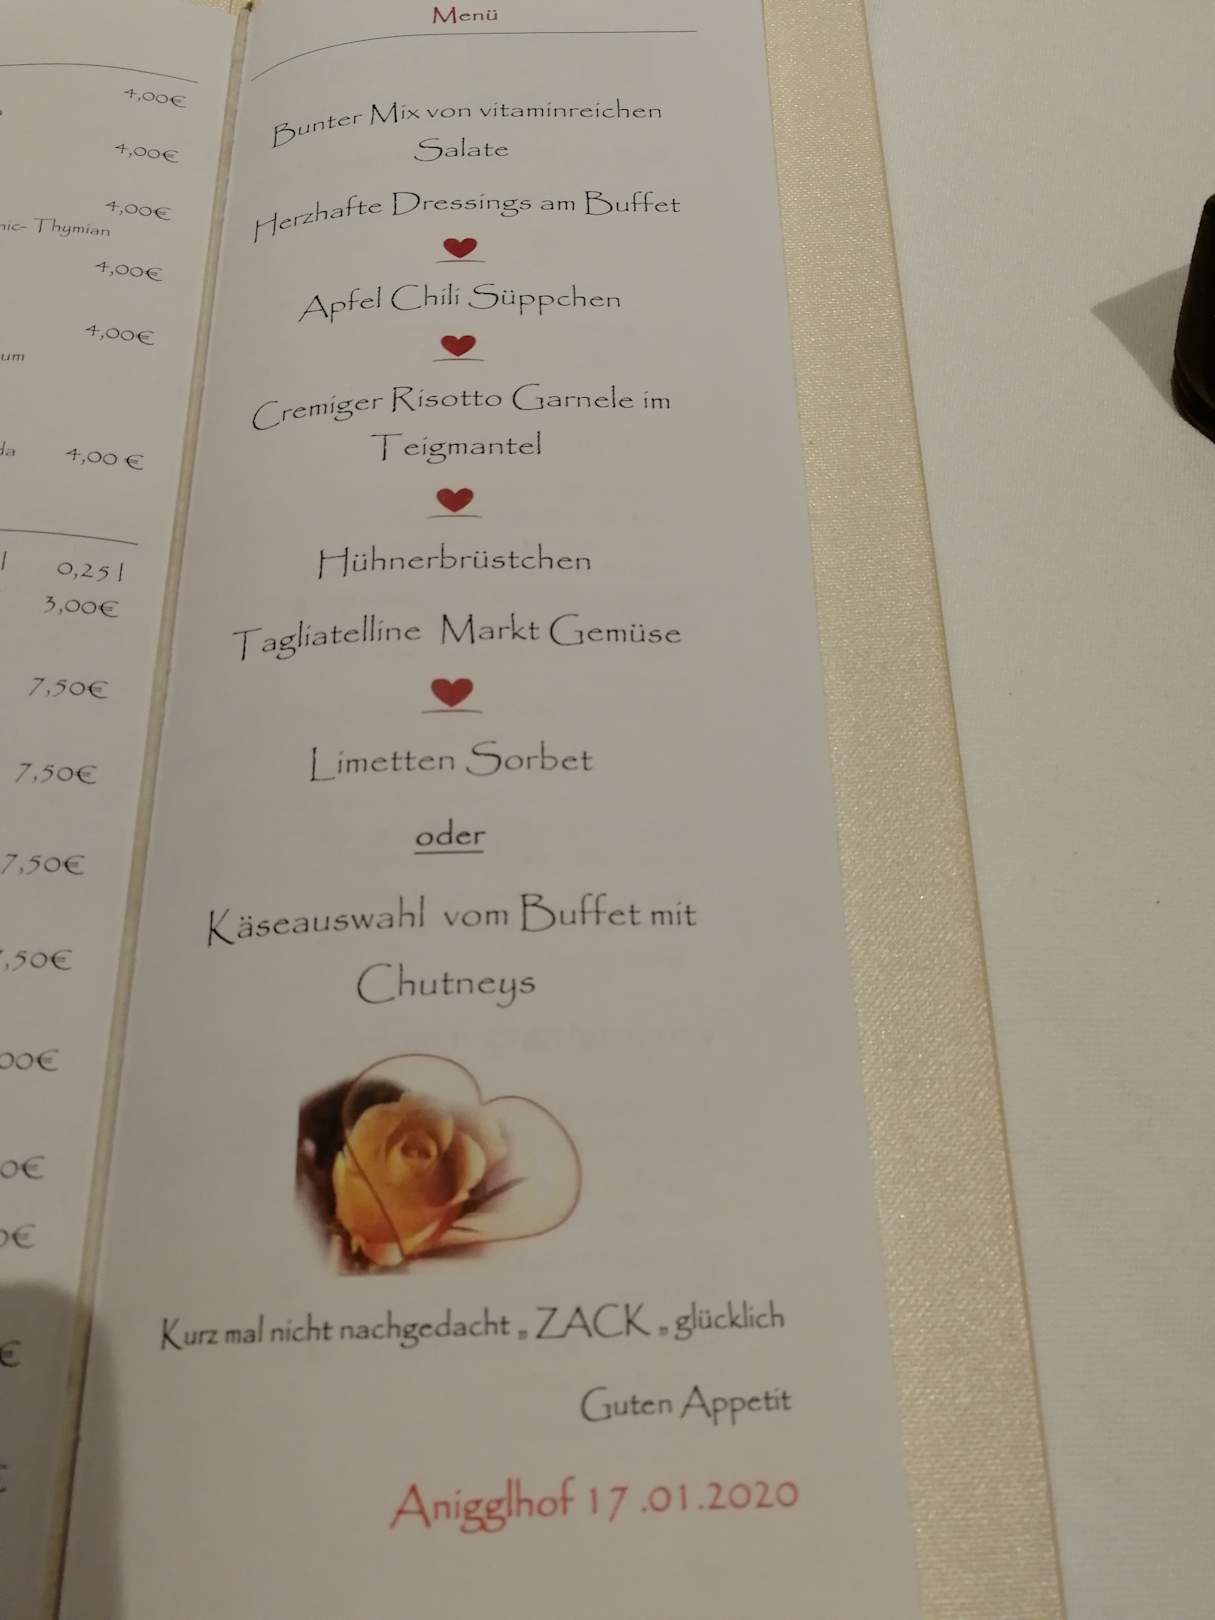 4,00€
4,00€
4,00€
nic- Thymian
4,00€
4,00€
um
da 4,00 €
l 0,25 l
3,00€
7,50€
7,50€
7,50€
,50€
00€
0€
0€
€
Menü
Bunter Mix von vitaminreichen
Salate
Herzhafte Dressings am Buffet
Apfel Chili Süppchen
Cremiger Risotto Garnele im
Teigmantel
Hühnerbrüstchen
Tagliatelline Markt Gemüse
Limetten Sorbet
oder
Käseauswahl vom Buffet mit
Chutneys
Kurz mal nicht nachgedacht „ ZACK „ glücklich
Guten Appetit
Anigglhof 17 .01.2020